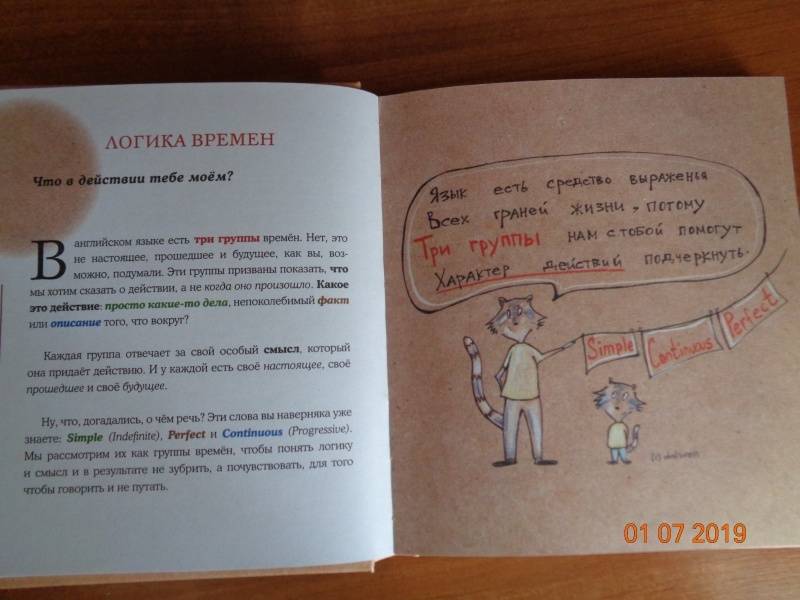 ЛОГИКА ВРЕМЕН
Что в действии тебе моём?
В английском языке есть три группы времён. Нет, это
не настоящее, прошедшее и будущее, как вы, воз-
можно, подумали. Эти группы призваны показать, что
мы хотим сказать о действии, а не когда оно произошло. Какое
это действие: просто какие-то дела, непоколебимый факт
или описание того, что вокруг?
Каждая группа отвечает за свой особый смысл, который
она придаёт действию. И у каждой есть своё настоящее, своё
прошедшее и своё будущее.
Ну, что, догадались, о чём речь? Эти слова вы наверняка уже
знаете: Simple (Indefinite), Perfect и Continuous (Progressive).
Мы рассмотрим их как группы времён, чтобы понять логику
и смысл и в результате не зубрить, а почувствовать, для того
чтобы говорить и не путать.
Язык есть средство выраженья
Всех граней жизни, потому
Три группы нам с тобой помогут
Характер действий подчеркнуть.
Simple
Continuous
Perfect
01 07 2019